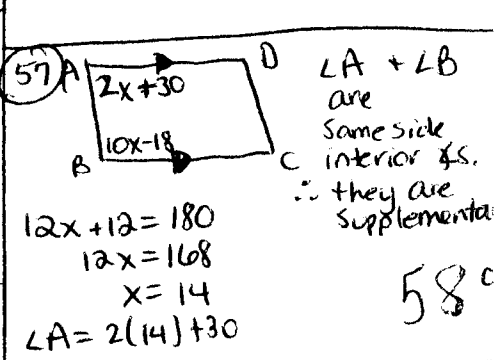 57
A
D
2x+30
10x-18
B
C
∠A + ∠B
are
same side
interior ∡s.
∴ they are
supplementa
12x+12=180
12x=168
x=14
∠A=2(14)+30
58°